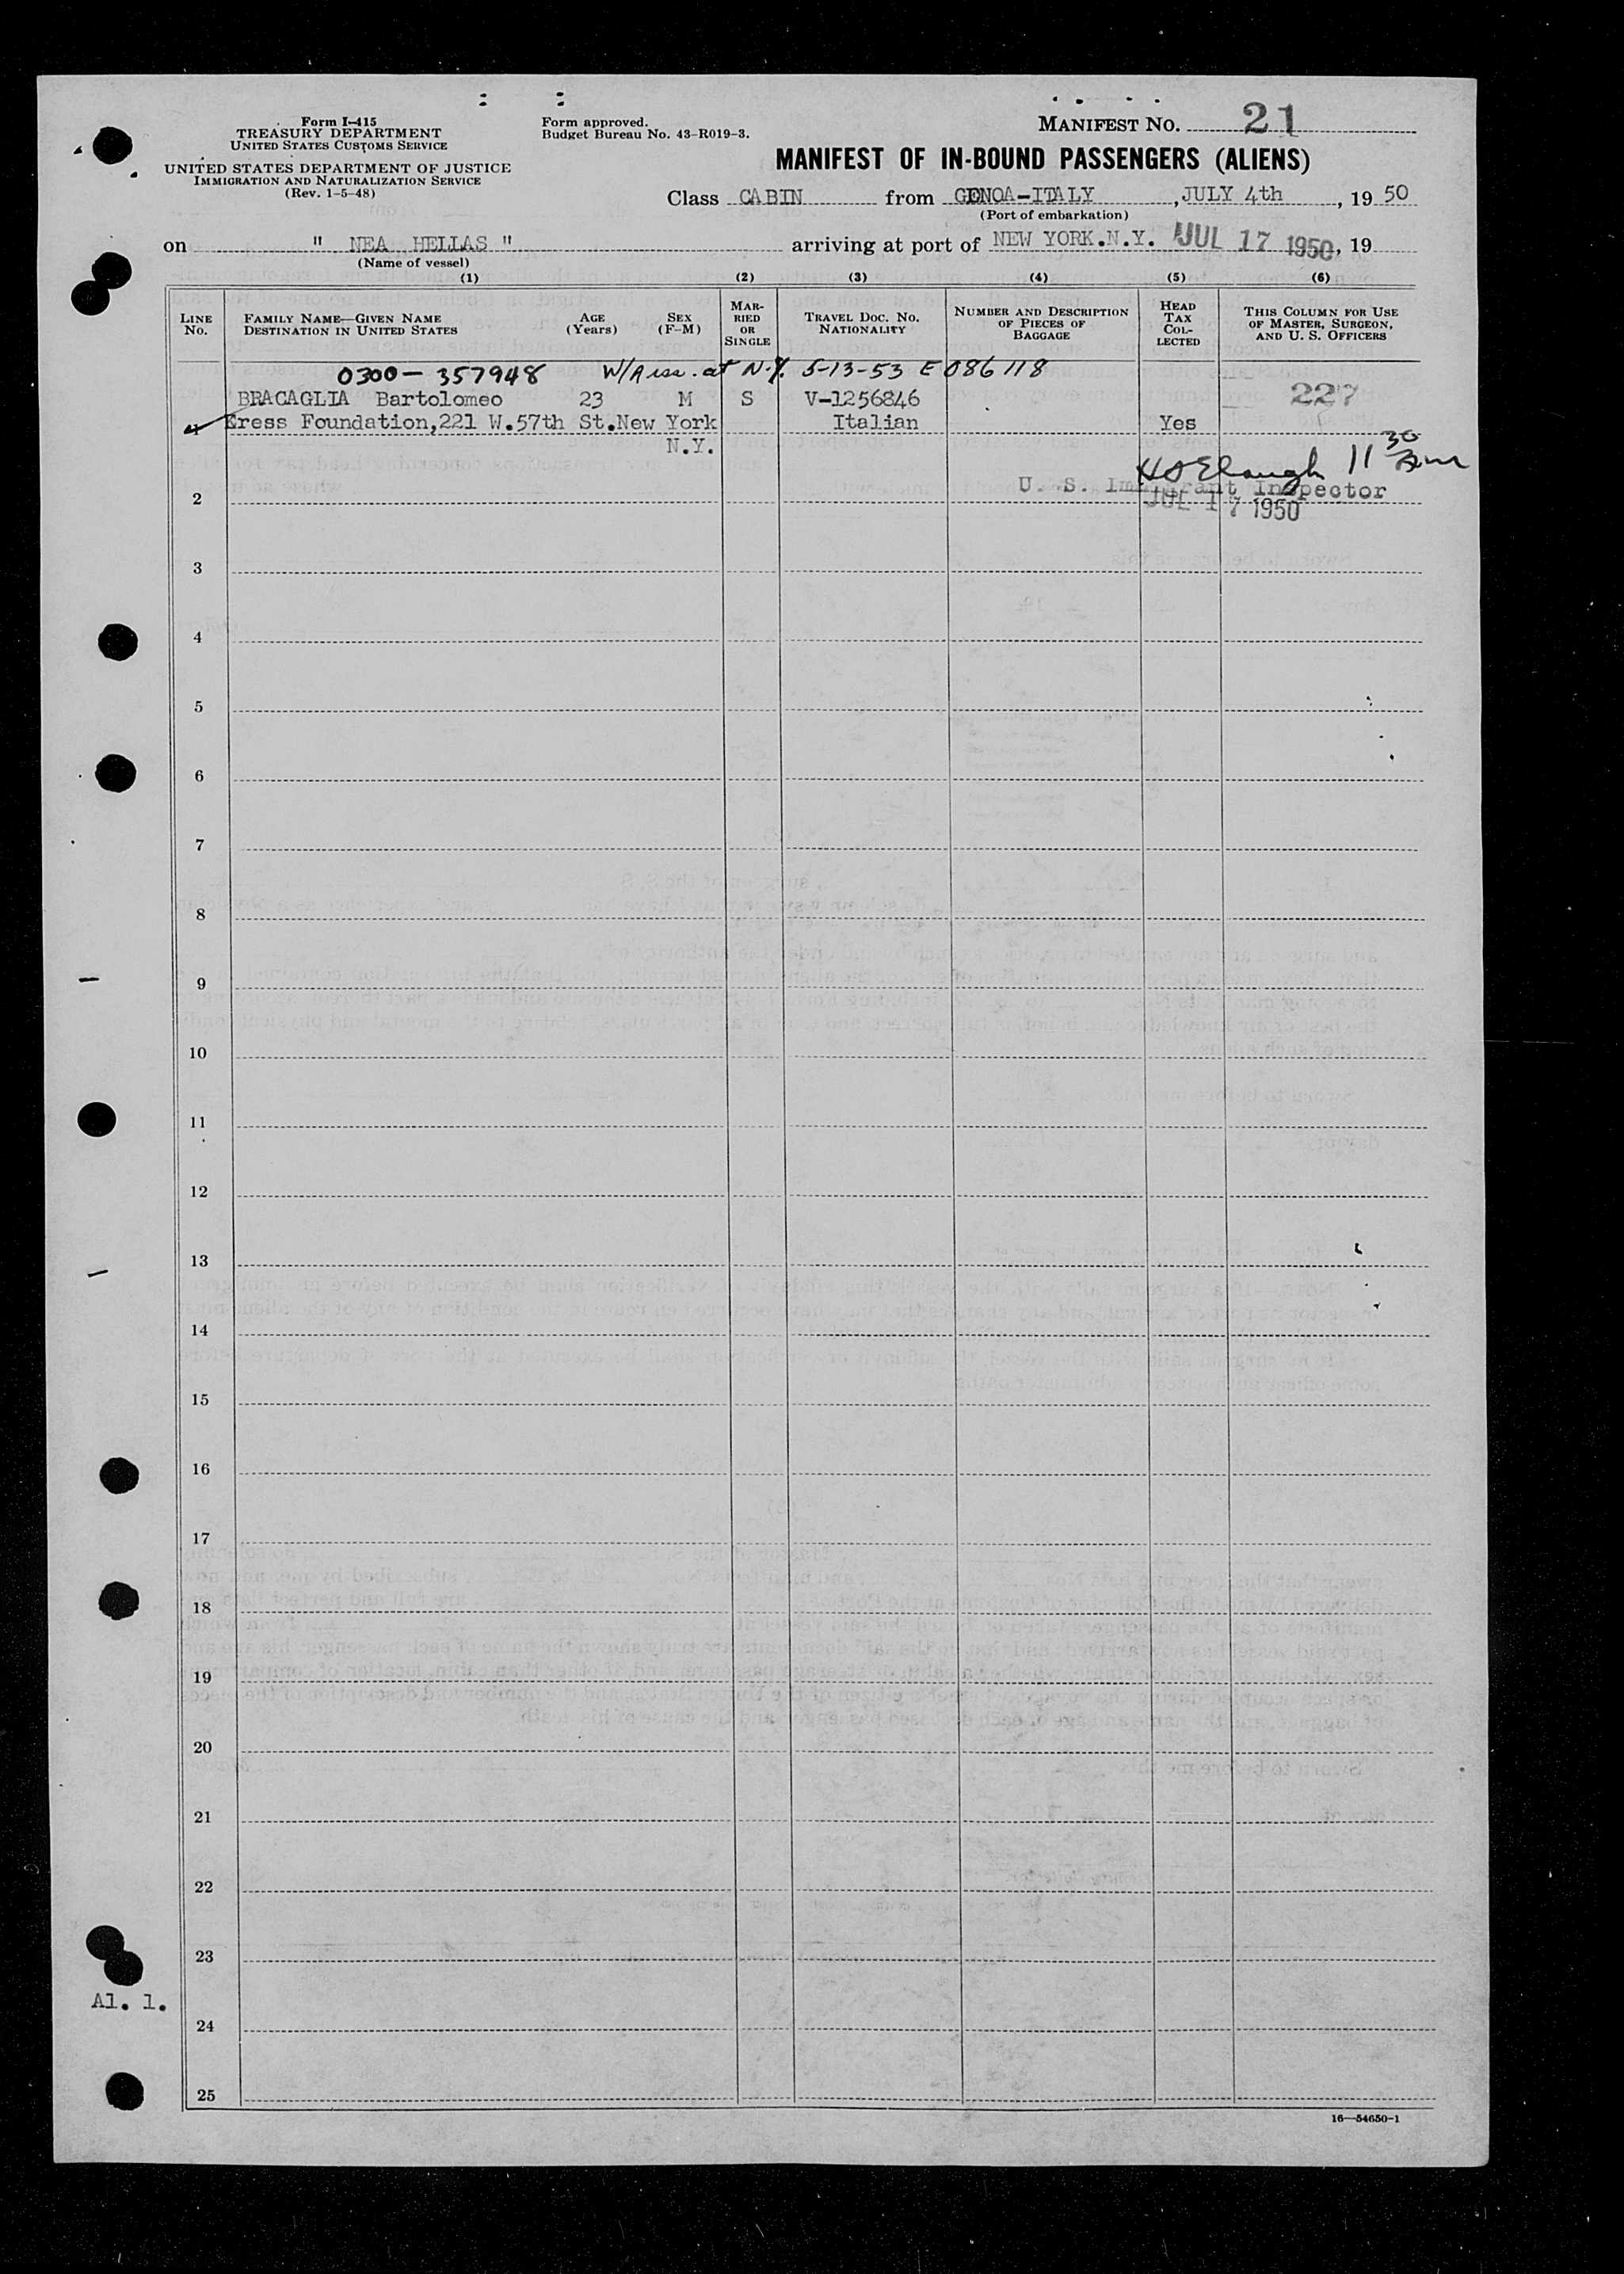 Form I-415
TREASURY DEPARTMENT
UNITED STATES CUSTOMS SERVICE
UNITED STATES DEPARTMENT OF JUSTICE
IMMIGRATION AND NATURALIZATION SERVICE
(Rev. 1-5-48)
Form approved.
Budget Bureau No. 43-R019-3.
MANIFEST NO. 21
MANIFEST OF IN-BOUND PASSENGERS (ALIENS)
Class CABIN from GENOA-ITALY, JULY 4th, 19 50
(Port of embarkation)
on " NEA HELLAS " arriving at port of NEW YORK.N.Y. JUL 17 1950, 19
(Name of vessel)
(1) (2) (3) (4) (5) (6)
LINE NO. FAMILY NAME—GIVEN NAME DESTINATION IN UNITED STATES AGE (Years) SEX (F-M) MARRIED OR SINGLE TRAVEL DOC. NO. NATIONALITY NUMBER AND DESCRIPTION OF PIECES OF BAGGAGE HEAD TAX COLLECTED THIS COLUMN FOR USE OF MASTER, SURGEON, AND U. S. OFFICERS
0300-357948 at N.Y. 5-13-53 E 086118
BRACAGLIA Bartolomeo 23 M S V-1256846 227
1 Eress Foundation,221 W.57th St.New York Italian Yes
N.Y.
11 30 Am
U. S. Immigrant Inspector
2 JUL 17 1950
3
4
5
6
7
8
9
10
11
12
13
14
15
16
17
18
19
20
21
22
23
Al. 1.
24
25
16—54650-1